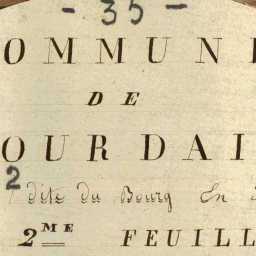 - 35 -
OMMUNE
DE
OURDAI
2
dite du Bourg En
2ME FEUILL